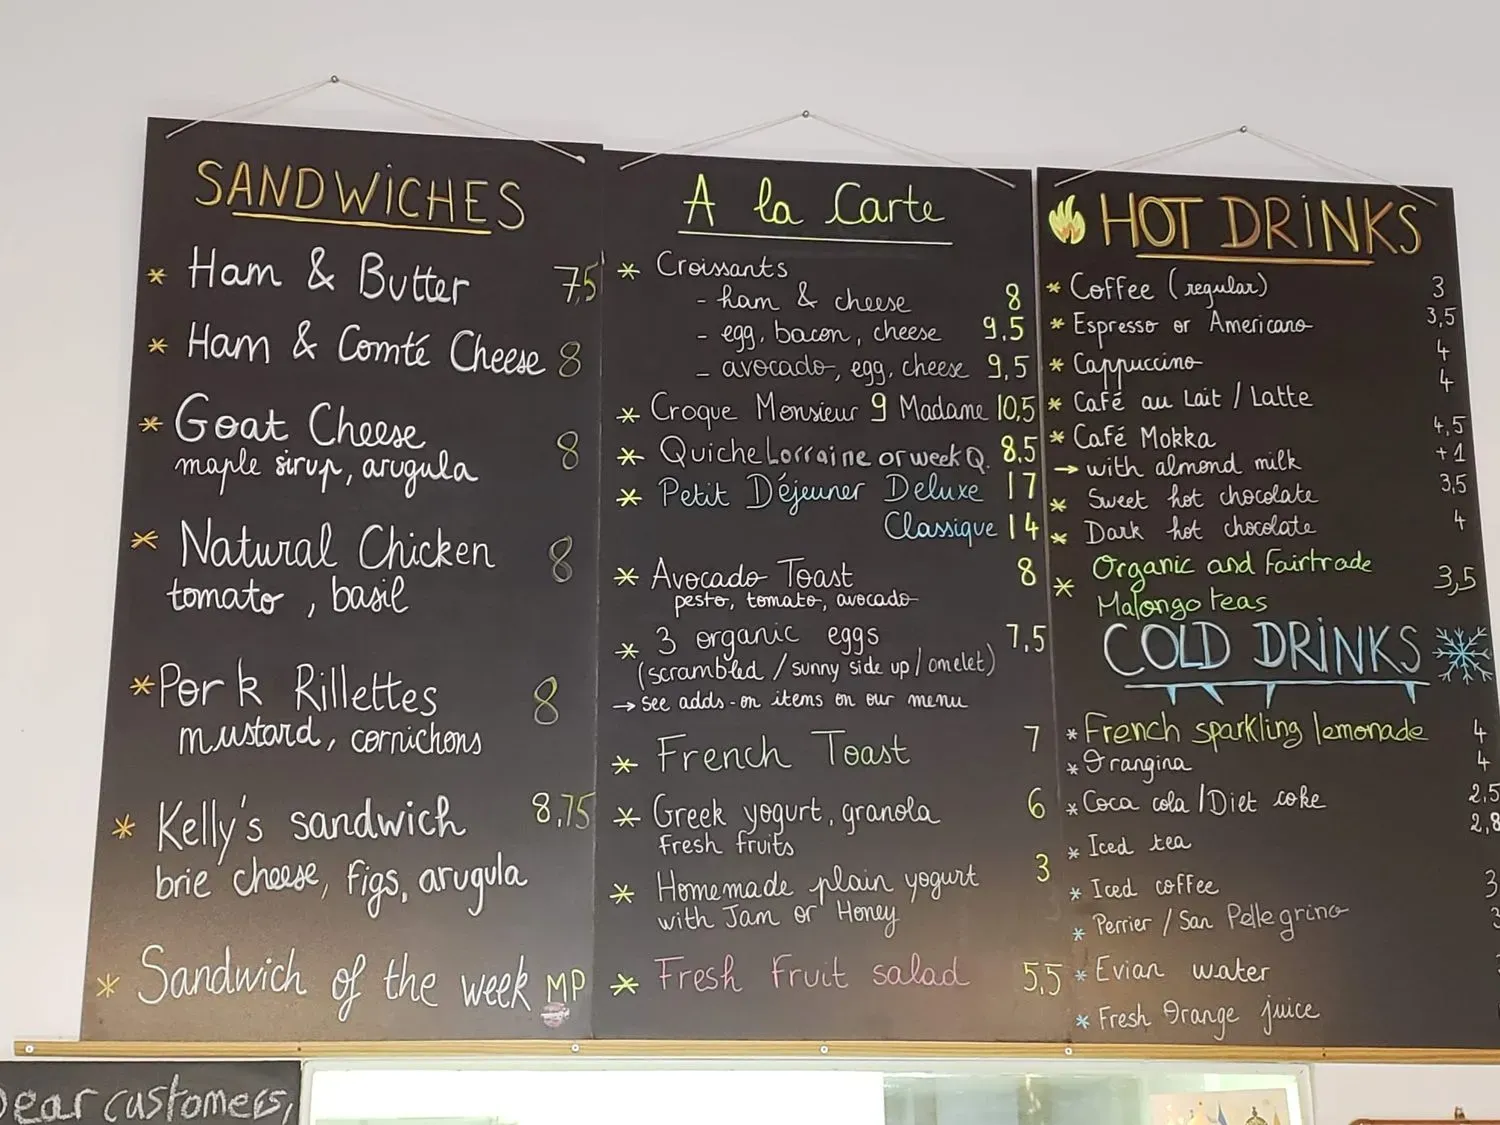 SANDWICHES
* Ham & Butter 7,5
* Ham & Comté Cheese 8
* Goat Cheese 8
maple sirup, arugula
* Natural Chicken 8
tomato, basil
* Pork Rillettes 8
mustard, cornichons
* Kelly's sandwich 8,75
brie cheese, figs, arugula
* Sandwich of the week MP
A la Carte
* Croissants
- ham & cheese 8
- egg, bacon, cheese 9,5
- avocado, egg, cheese 9,5
* Croque Monsieur 9 Madame 10,5
* Quiche Lorraine or week Q. 8.5
* Petit Déjeuner Deluxe 17
Classique 14
* Avocado Toast 8
pesto, tomato, avocado
* 3 organic eggs 7,5
(scrambled / sunny side up / omelet)
→ see adds-on items on our menu
* French Toast 7
* Greek yogurt, granola 6
Fresh fruits
* Homemade plain yogurt 3
with Jam or Honey
* Fresh Fruit salad 5,5
HOT DRINKS
* Coffee (regular) 3
* Espresso or Americano 3,5
* Cappuccino 4
* Café au Lait / Latte 4
* Café Mokka 4,5
→ with almond milk +1
* Sweet hot chocolate 3,5
* Dark hot chocolate 4
* Organic and Fairtrade 3,5
Malongo teas
COLD DRINKS
* French sparkling lemonade 4
* Orangina 4
* Coca cola / Diet coke 2,5
* Iced tea 2,8
* Iced coffee 3
* Perrier / San Pellegrino 3
* Evian water
* Fresh Orange juice
Dear customers,